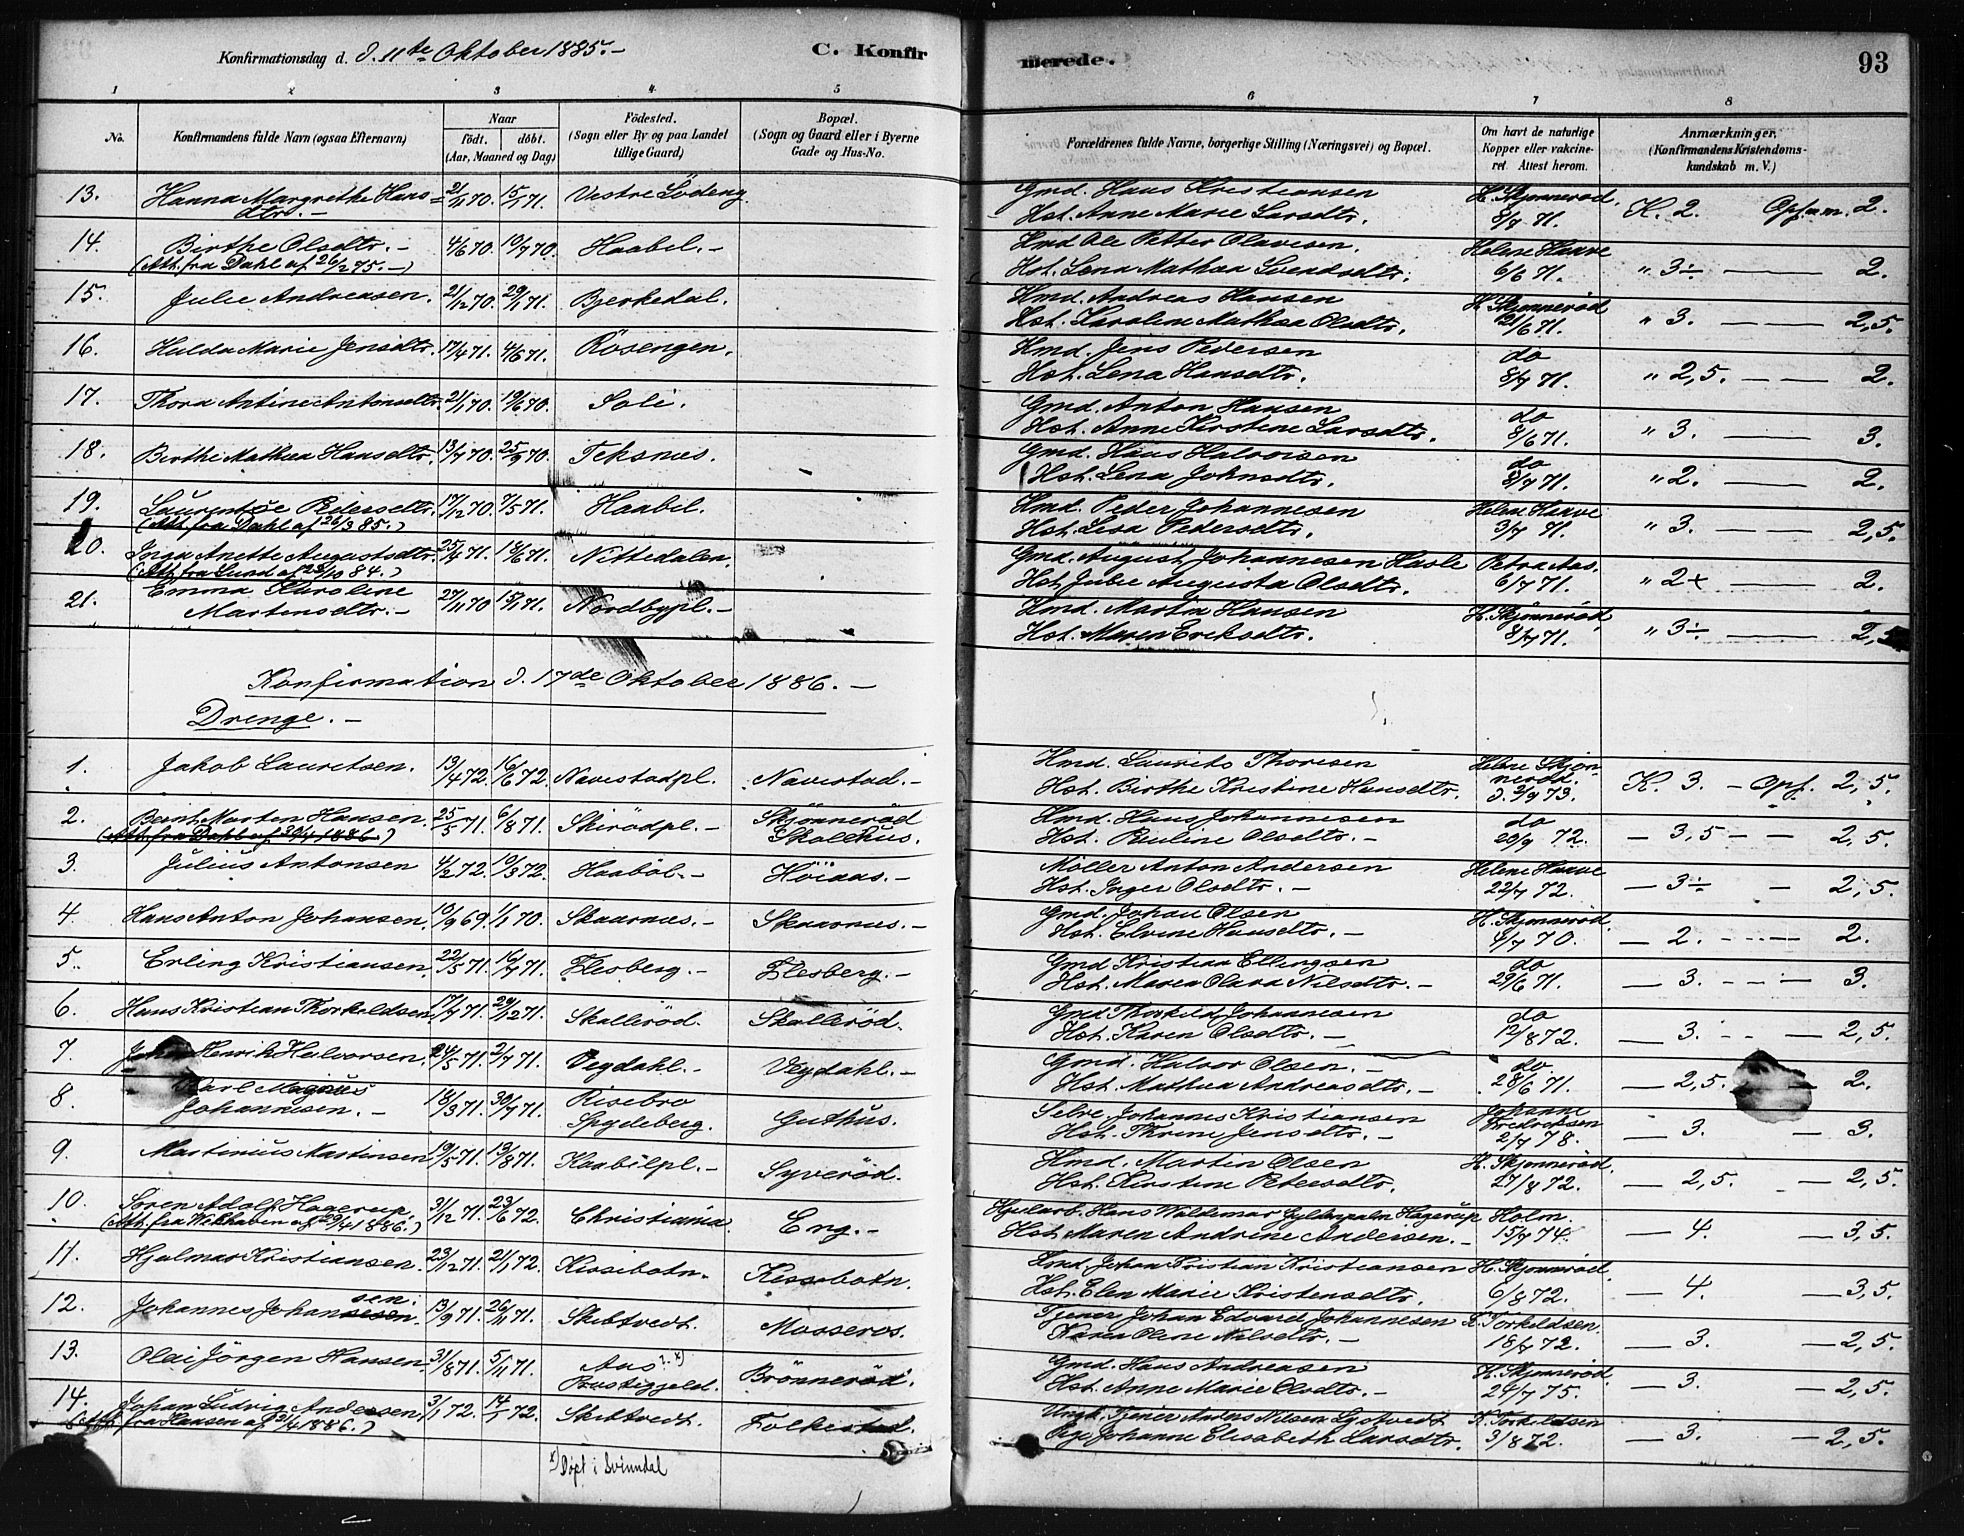 Konfirmationsdag d. d. 11te Oktober 1885.- C. Konfirmerede. 93
1 2 3 4 5 6 7 8
No. Konfirmandens fulde Navn (ogsaa Efternavn) Naar født. døbt. (Aar, Maaned og Dag) Fødested. (Sogn eller By og paa Landet tillige Gaard) Bopæl. (Sogn og Gaard eller i Byerne Gade og Hus-No. Forældrenes fulde Navne, borgerlige Stilling (Næringsvei) og Bopæl. Om havt de naturlige Kopper eller vakcineret. Attest herom. Anmærkninger, (Konfirmandens Kristendomskundskab m. V.)
13. Hanna Margrethe Hansdtr.- 21/11 70. 15/1 71. Vestre Lödeng. Gmd. Hans Kristiansen H. Skjønnerød,
Hst. Anne Marie Larsdtr. 8/7 71. K. 2. Opf. a.m. 2.
14. Birthe Olsdtr.- 4/6 70. 10/7 70. Haabel.- Hmd. Ole Petter Olavesen. Helene Haave
(Att. fra Dahl af 26/2 75.-) Hst. Lena Mathea Svendsdtr. 6/6 71. " 3÷ — 2.
15. Julie Andreasen. 21/12 70. 29/1 71. Bjerkedal. Hmd. Andreas Hansen H. Skjønnerød
Hst. Karoline Mathea Olsdtr. 21/6 71. " 3. — 2,5.
16. Hulda Marie Jensdtr. 17/4 71. 4/6 71. Rösengen. Hmd. Jens Pedersen do
Hst. Lena Hansdtr. 8/7 71. " 2,5. — 2.
17. Thora Antine Antonsdtr. 21/1 70. 19/6 70. Soli. Gmd. Anton Hansen do
Hst. Anne Kirstine Larsdtr. 8/6 71. " 3. — 3.
18. Birthe Mathea Hansdtr. 13/7 70. 25/9 70. Teksnes. Gmd. Hans Halvorsen do
Hst. Lena Johnsdtr. 8/7 71. " 2. — 2.
19. Laurentse Pedersdtr. 17/12 70. 7/5 71. Haabel. Hmd. Peder Johannesen Helene Haave
(Att. fra Dahl af 26/3 85.) Hst. Lisa Pedersdtr. 3/7 71. " 3. — 2,5.
20. Inga Anette Augustsdtr. 25/4 71. 18/6 71. Nittedalen. Gmd. August Johannesen Hasle Petra Aas.
(Att. fra Lund af 23/10 84.) Hst. Julie Augusta Olsdtr. 6/7 71. " 2+ — 2.
21. Emma Karoline Hmd. Martin Hansen H. Skjønnerød,
Martinsdtr.- 27/11 70 15/1 71. Nordbypl.- Hst. Maren Eriksdtr. 8/7 71. " 3÷ — 2,5
Konfirmation d. 17de Oktober 1886.-
Drenge.-
1. Jakob Lauritsen. 13/4 72. 16/6 72. Navestadpl. Navestad.- Hmd. Laurits Thoresen Helene Skjønnerød.
Hst. Birthe Kristine Hansdtr. d. 2/9 73. K. 3. - Opf. 2,5.
2. Bernt Morten Hansen. 25/5 71. 6/8 71. Skirödpl.- Skjönneröd Skolehus. Hmd. Hans Johannesen do
(Att. fra Dahl af 30/4 1886) Hst. Pauline Olsdtr.- 20/9 72. - 3,5 - - 2,5.
3. Julius Antonsen 4/2 72. 10/3 72. Haaböl.- Höiaas.- Möller Anton Andersen Helene Haave
Hst. Inger Olsdtr.- 22/7 72. — 3÷ - 2,5.
4. Hans Anton Johansen. 19/9 69. 1/1 70. Skaarnes.- Skaarnes.- Gmd. Johan Olsen H. Skjønnerød.
Hst. Elvine Hansdtr.- 4/7 70. — 2. - - - 2.
5. Erling Kristiansen. 22/5 71. 16/7 71. Flesberg.- Flesberg.- Gmd. Kristian Ellingsen do
Hst. Maren Olava Nilsdtr.- 29/6 71. — 3. - - - 3.
6. Hans Kristian Thorkeldsen. 17/7 71. 29/12 71. Skalleröd. Skalleröd. Gmd. Thorkild Johannesen do
Hst. Karen Olsdtr.- 12/8 72. — 3. - - - 2,5.
7. Henrik Halvorsen. 24/5 71. 2/7 71. Vegdahl.- Vegdahl.- Gmd. Halvor Olsen.- do.
Hst. Mathea Andreasdtr.- 28/6 71. — 2,5. - 2.
8. Karl Magnus Selve. Johannes Kristiansen Johanne Fredriksen
Johannesen.- 18/3 71. 30/7 71. Risebro Spydeberg. Guthus. Hst. Thrine Jensdtr.- 2/7 78. — 3. - 3.
9. Martinius Martinsen 19/5 71. 13/8 71. Haabölpl.- Syveröd. Hmd. Martin Olsen H. Skjønnerød.
Hst. Kirstine Petersdtr. 27/8 72. — 2,5. - 2,5.
10. Sören Adolf Hagerup. 3/12 71. 23/6 72. Christiania Eng.- Hans Waldemar Gyldenpalm Hagerup Holm.
Hst. Maren Andrine Andersen.- 15/7 74. — 4. - 3,5.
11. Hjalmar Kristiansen. 23/12 71. 21/1 72. Kissebotn. Kissebotn. Hmd. Johan Kristian Kristiansen H. Skjønnerød.
Hst. Elen Marie Kristensdtr. 6/8 72. — 4. - 3,5.
12. Johannes Johansen. 13/9 71. 26/11 71. Skibtvedt. Mosseros. Tjener Johan Edvard Johannesen K. Torkildsen.
Karen Oline Nilsdtr.- 18/7 72. — 3. - 2,5.
13. Olai Jörgen Hansen. 31/8 71. 5/11 71. Aas ?. x) Præstegjeld. Brönneröd. Gmd. Hans Andreasen H. Skjønnerød.
Hst. Anne Marie Olsdtr.- 24/7 75. — 3. - 2,5.
14. Johan Ludvig Andersen. 3/1 72. 14/1 72. Skibtvedt. Folkestad. Ungk. Tjener Anders Nilsen Lystvedt K. Torkildsen
(Att. fra Hansen af 21/4 1886.) Pige Johanne Elisabeth Larsdtr. 3/8 72. — 3. - 2,5.
x) Døpt i Svinndal